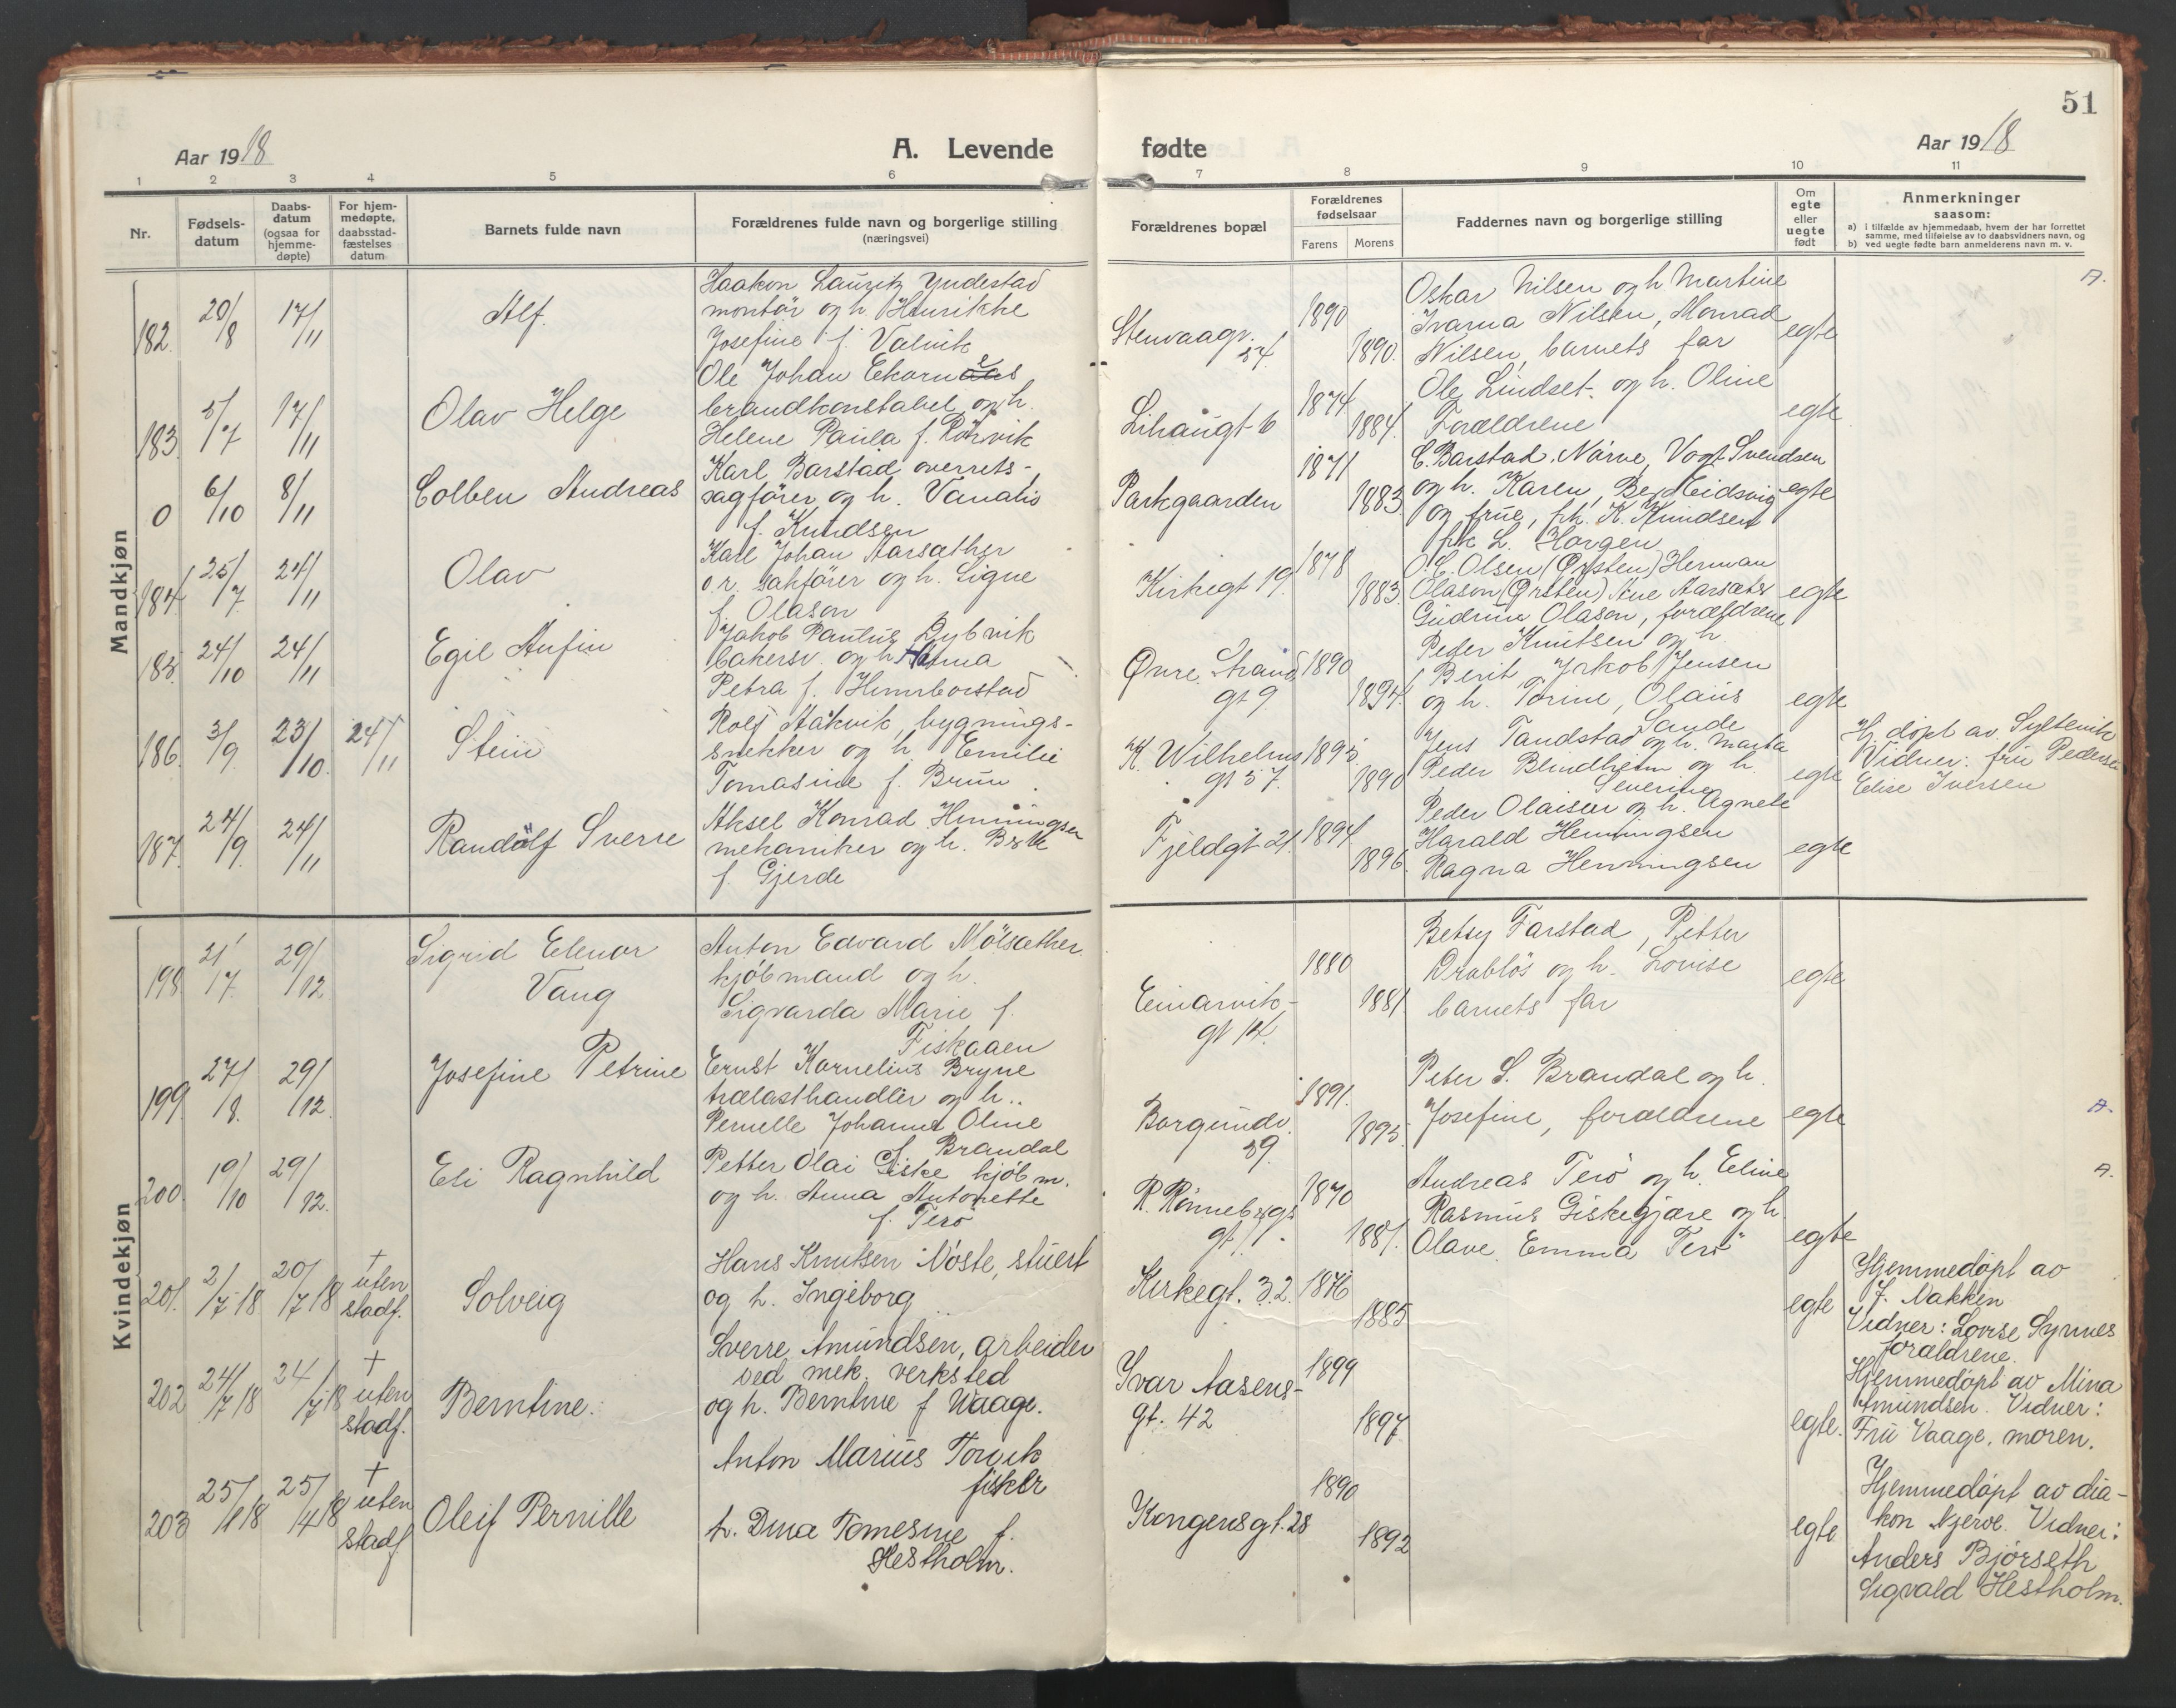 51
Aar 1918
A. Levende fødte
Aar 1918
1 2 3 4 5 6 7 8 9 10 11
Nr.
Fødsels-
datum
Daabs-
datum
(ogsaa for
hjemme-
døpte)
For hjem-
medøpte,
daabsstad-
fæstelses
datum
Barnets fulde navn
Forældrenes fulde navn og borgerlige stilling
(næringsvei)
Forældrenes bopæl
Forældrenes
fødselsaar
Farens Morens
Faddernes navn og borgerlige stilling
Om
egte
eller
uegte
født
Anmerkninger
saasom:
a) i tilfælde av hjemmedaab, hvem der har forrettet
samme, med tilføielse av to daabsvidners navn, og
b) ved uegte fødte barn anmelderens navn m. v.
Mandkjøn
182. 20/8 17/11
Alf.
Haakon Lauritz Yndestad
montör og h. Henrikke
Josefine f. Valvik
Stenvaagv.
54.
1890
1890.
Oskar Nilsen og h Martine
Ivarna Nilsen, Monrad
Nilsen, barnets far
egte
A.
183. 5/7 17/11
Olav Helge
Ole Johan Ekornaas
brandkonstabel og h.
Helene Paula f. Rörvik
Lihaugt 6
1874.
1884.
Ole Lindset og h. Oline
Forældrene
egte
0 6/10 8/11
Colben Andreas
Karl Barstad overrets-
sagfører og h. Vanahs
f. Knudsen
Parkgaarden
1871
1883.
C. Barstad. Nörve, Vogt Svendsen
og h. Karen, Bernt Eidsvig
og frue, frk. K. Knudsen
frk L. Horgen
egte
184. 25/7 24/11
Olav
Karl Johan Aarsæther
o.r. sakfører og h. Signe
f. Olason
Kirkegt 19.
1878
1883.
O. C. Olsen (Ørsten) Herman
Olason (Ørsten) Aarsæter
Gudrun Olason, forældrene
egte
185. 24/10 24/11
Egil Anfin
Jakob Paulus Dybvik
bakersv. og h
Petra f.
Øvre Strand
gt 9
1890
1894.
Peder Knutsen og h.
Berit Jakob Jensen
og h. Torine, Olaus
Sande
egte
186. 3/9. 23/10. 24/11
Stein
Rolf Stakvik, bygnings-
snekker og h. Emilie
Tomasine f. Brun.
K. Wilhelms
gt 57.
1895.
1890
Jens Tandstad og h. Marta
Peder Blindheim og h.
Severine
egte
Hj. døpt av Syltevik
Vidner: fru Pedersen
Elise Iversen
187. 24/9. 24/11
Randolf Sverre
Aksel Konrad Henningsen
mekaniker og h. Brit
f. Gjerde
Fjeldgt 21.
1894.
1896.
Peder Olaisen og h. Agnete
Harald Henningsen
Ragna Henningsen
egte
Kvindekjøn
198 21/7. 29/12
Sigrid Elenor
Vang
Anton Edvard Mölsæther
kjöbmand og h.
Sigvarda Marie f.
Fiskaaen
Einarvik-
gt 14.
1880
1881.
Betsy Farstad, Petter
Drabløs og h. Lovise
barnets far
egte
199 27/8. 29/12.
Josefine Petrine
Ernst Kornelius Bryne
trælasthandler og h..
Pernelle Johanne Oline
f. Brandal
Borgundv.
39.
1891.
1895.
Peter S. Brandal og h.
Josefine, forældrene
egte
A.
200. 19/10 29/12.
Eli Ragnhild
Petter Olai Giske kjöbm.
og h. Anna Antonette
f. Terö
R. Rönnebergs
gt 11.
1870
1881.
Andreas Terö og h. Eline
Rasmus Giskegjære og h.
Olave Emma Terö
egte
A.
201. 2/7-18 20/7 18 † uten
stadf.
Solveig
Hans Knutsen Nöste, stuert
og h. Ingeborg
Kirkegt. 32.
1876
1885
egte
Hjemmedøpt av
J. Nakken
Vidner: Lovise Synnes
forældrene.
202 24/7 18 24/7 18 † uten
stadf.
Berntine.
Sverre Amundsen, arbeider
ved mek. verksted
og h. Berntine f Waage.
Ivar Aasens-
gt. 42
1899
1897
egte.
Hjemmedøpt av Mina
Amundsen. Vidner:
Fru Vaage, moren.
203 25/1 18 25/4 18 † uten
stadf
Oleif Pernille
Anton Marius Torvik
fisker
h. Dina Tomesine f.
Hestholm.
Kongensgt. 28
1890
1892
egte
Hjemmedøpt av dia-
kon Njerve. Vidner:
Anders Bjørseth
Sigvald Hestholm.